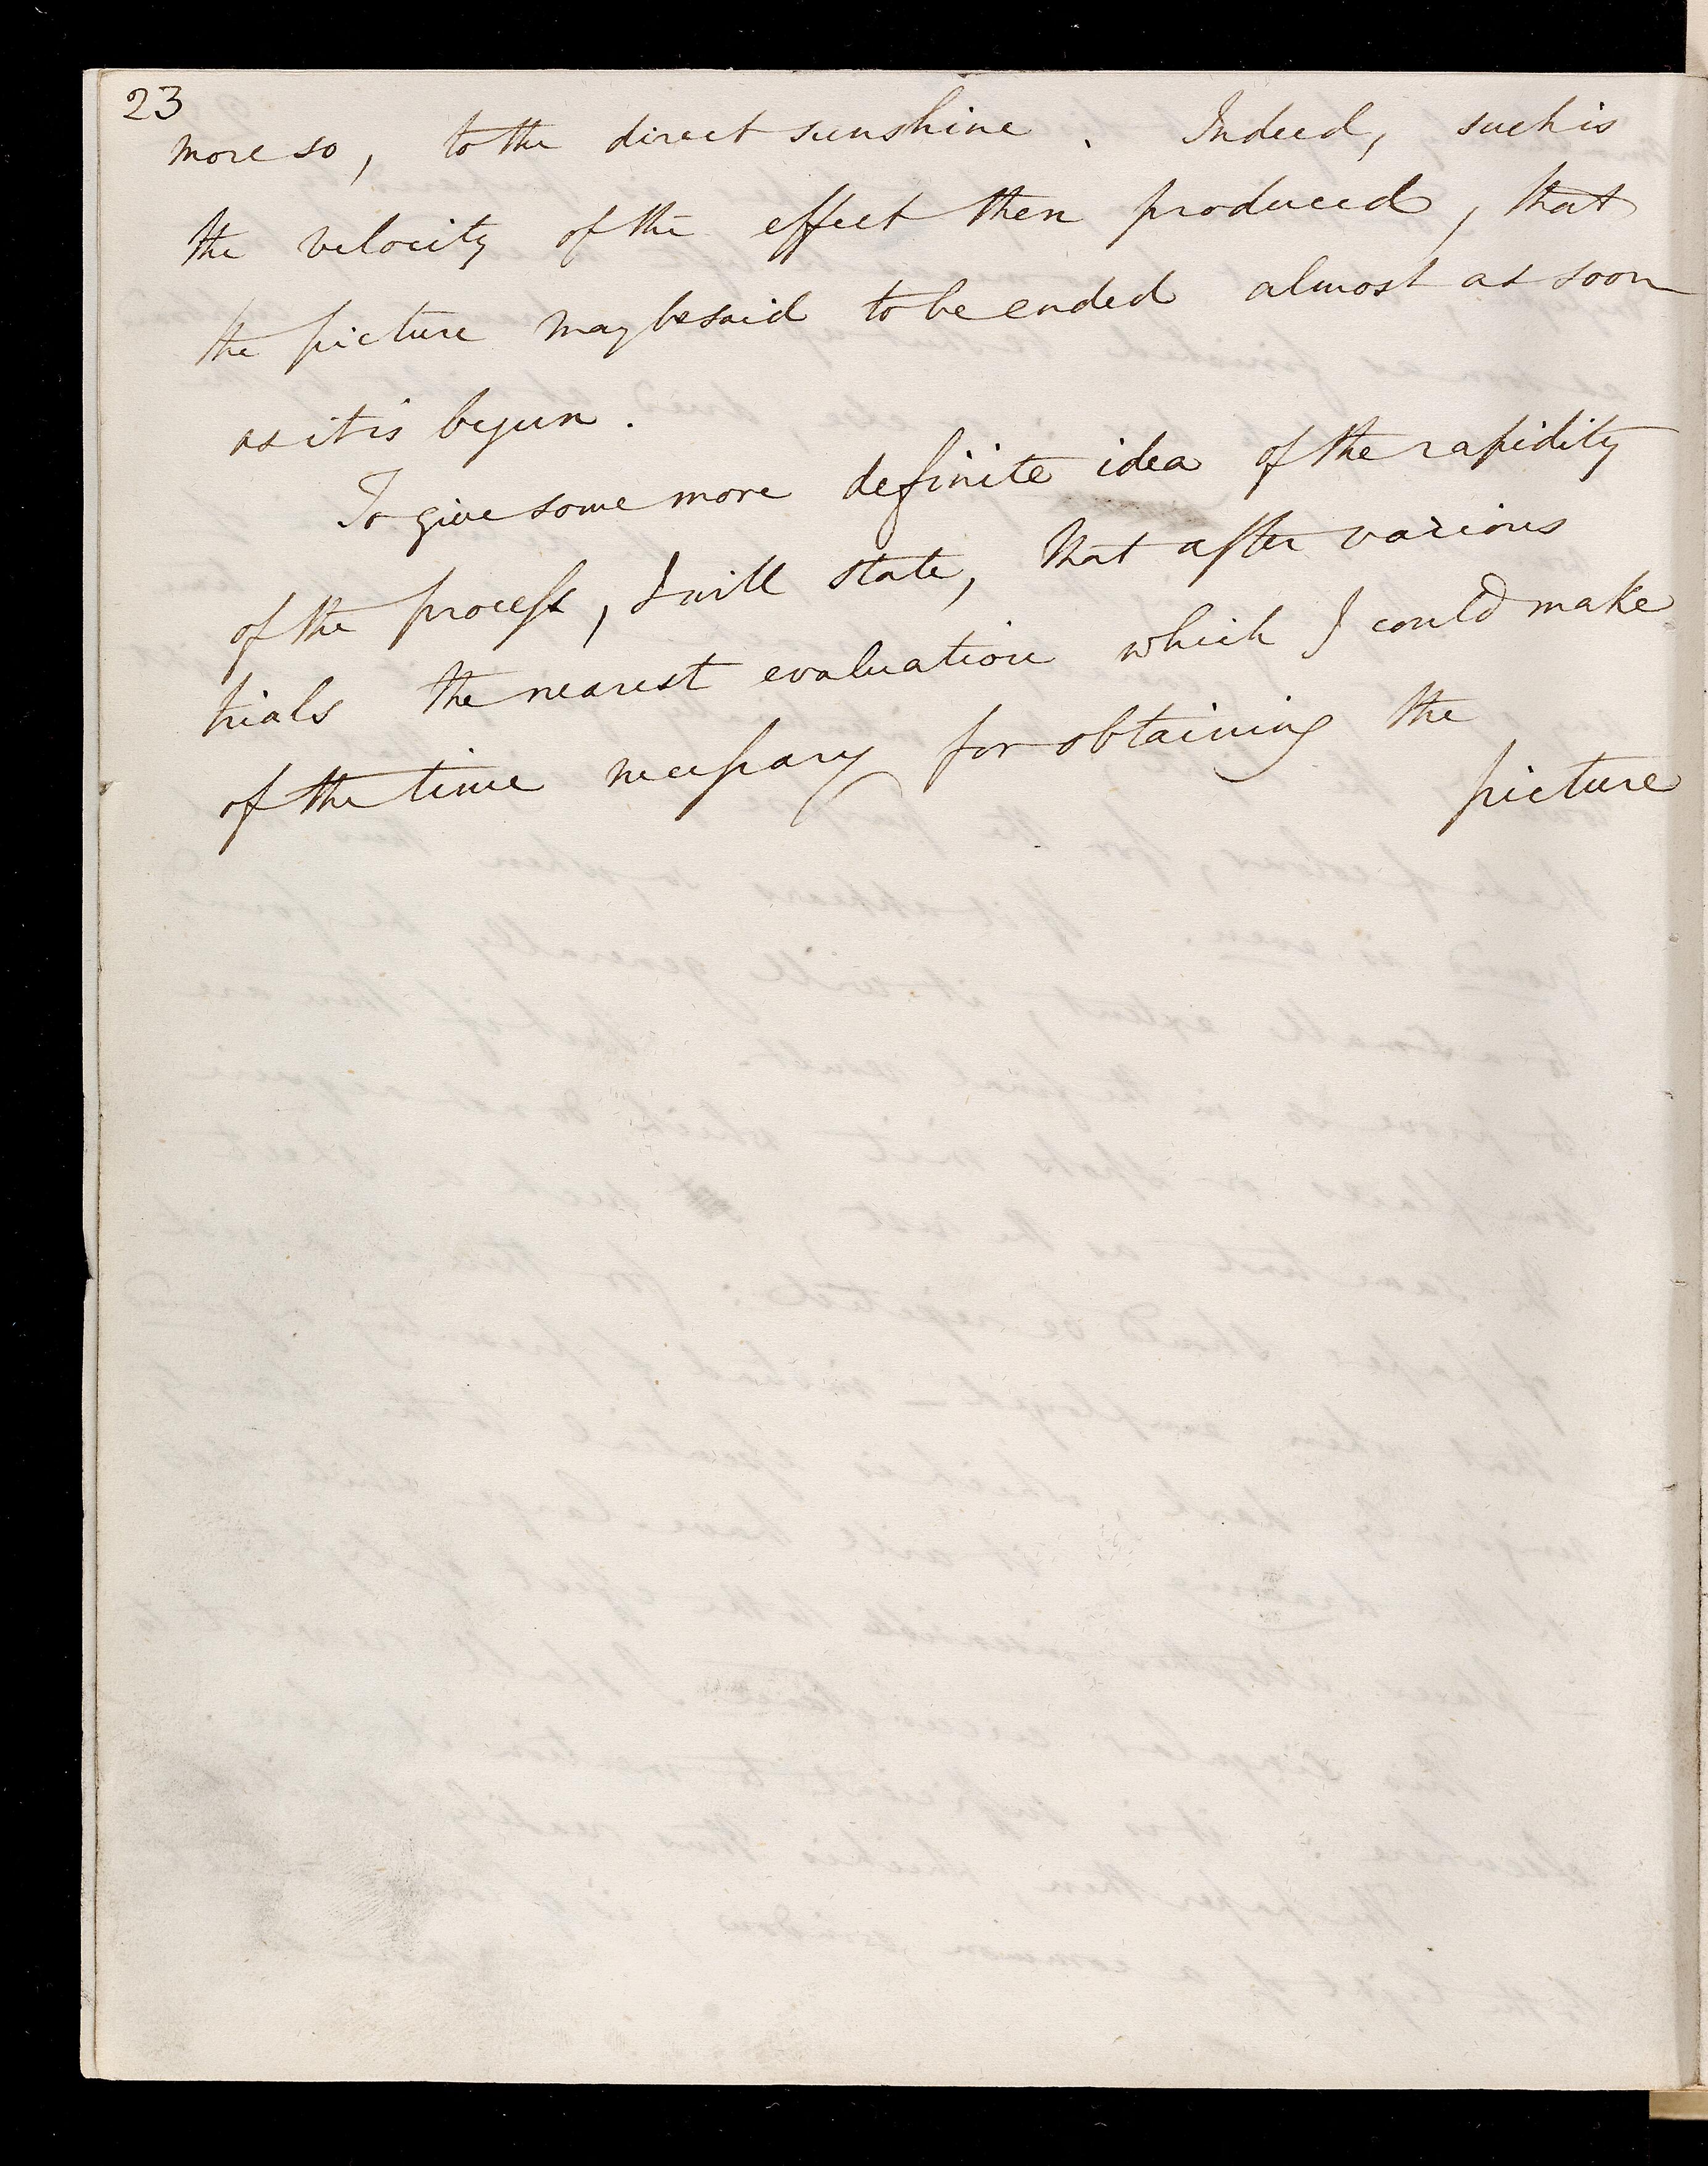 23
more so, to the direct sunshine. Indeed, such is
the velocity of the effect then produced, that
the picture may be said to be ended almost as soon
as it is begun.
To give some more definite idea of the rapidity
of the proceſs, I will state, that after various
trials the nearest evaluation which I could make
of the time neceſsary for obtaining the
picture